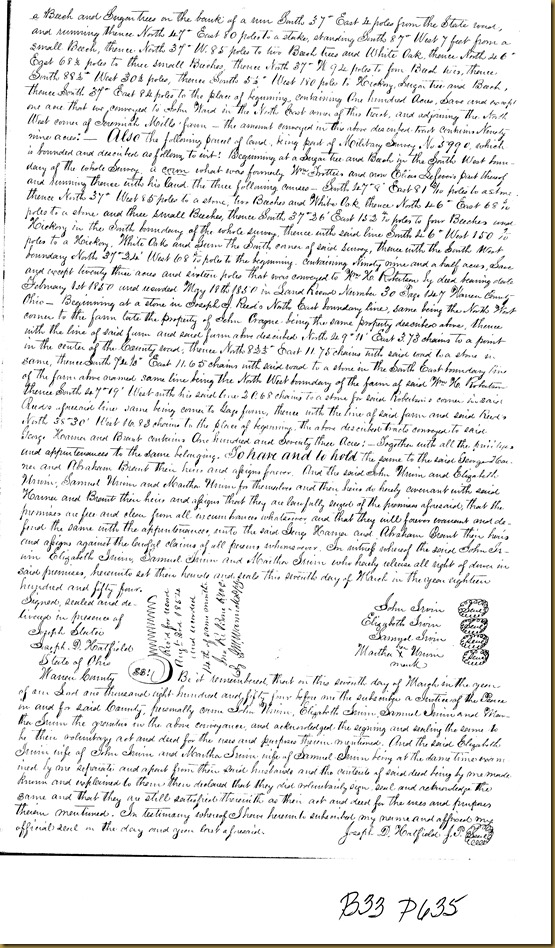 a Beech and Sugar trees on the bank of a run South 37° East 4 poles from the State road,
and running thence North 47° East 80 poles to a stake, standing South 87° West 7 feet from a
small Beech, thence North 37° W. 85 poles to two Beech trees and White Oak, thence North 46°
East 68½ poles to three small Beeches, thence North 37° W 92 poles to four Beech trees, thence
South 88½° West 30½ poles, thence South 53° West 150 poles to Hickory, Sugar tree and Beech,
thence South 37° East 84 poles to the place of beginning containing One hundred Acres, Save and except
one acre that we conveyed to John Ward in the North East corner of this tract, and adjoining the North
West corner of Jeremiah Mills' farm - the amount conveyed in the above described tract contains Ninety
nine acres: - Also the following parcel of land, being part of Military Survey No 3790, which
is bounded and described as follows to wit: Beginning at a Sugar tree and Beech in the South West boun-
dary of the whole Survey, a corn what was formerly Wm Trotters and now part thereof
and running thence with his land the three following courses - South 47° 8' East 81 poles to a stone
thence North 37° West 85 poles to a stone, two Beeches and White Oak thence North 46° East 68
poles to a stone and three small Beeches, thence South 37° 26' East 152 poles to four Beeches and
Hickory in the South boundary of the whole survey, thence with said line South 46° West 150
poles to a Hickory, White Oak and Gum the South corner of said Survey, thence with the South West
boundary North 37° 24' West 68 poles to the beginning. containing Ninety one and a half acres, Save
and except twenty three acres and sixteen poles that was conveyed to Wm H. Robertson by deed bearing date
February 1st 1850 and recorded May 18th 1850 in Land Record Number 30 Page 247 Warren County
Ohio - Beginning at a stone in Joseph G Reed's North East boundary line, same being the North West
corner to the farm late the property of John being the same property described above, thence
with the line of said farm and said farm above described North 49° 11' East 3.73 chains to a point
in the center of the County road; thence North 83½° East 11.75 chains with said road to a stone in
same, thence South 74½° East 11.65 chains with said road to a stone in the South East boundary line
of the farm above named same line being the North West boundary of the farm of said Wm H. Robertson
thence South 47° 19' West with his said line 21.65 chains to a stone for said Robertson's corner in said
Reed's aforesaid line same being corner to farm, thence with the line of said farm and said Reed's
North 35° 30' West 16.83 chains to the place of beginning. the above described tracts conveyed to said
George Keever and Brant contains One hundred and Seventy three Acres: - Together with all the privileges
and appurtenances to the same belonging. To have and to hold the same to the said George Kee-
ver and Abraham Brant their heirs and assigns forever. And the said John Irwin and Elizabeth
Irwin, Samuel Irwin and Martha Irwin for themselves and their heirs do hereby covenant with said
Keever and Brant their heirs and assigns that they are lawfully seized of the premises aforesaid, that the
premises are free and clear from all incumbrances whatsoever and that they will forever warrant and de-
fend the same with the appurtenances, unto the said George Keever and Abraham Brant their heirs
and assigns against the lawful claims of all persons whomsoever. In witness whereof the said John Ir-
win Elizabeth Irwin, Samuel Irwin and Martha Irwin who hereby release all right of dower in
said premises, hereunto set their hands and seals this seventh day of March in the year eighteen
hundred and fifty four.
Signed, sealed and de-
livered in presence of
Joseph Slater
Joseph D. Hatfield
Rec'd for record
Augt 23d 1854
and recorded
14th of same month
John Irvin Seal
Elizabeth Irvin Seal
Samuel Irvin Seal
Martha X Irwin Seal
mark
State of Ohio
Warren County SS: Be it remembered that on this seventh day of March in the year
of our Lord one thousand eight hundred and fifty four before me the subscriber a Justice of the Peace
in and for said County, personally came John Irwin, Elizabeth Irwin, Samuel Irwin and Mar-
tha Irwin the grantors in the above conveyance, and acknowledged the signing and sealing the same to
be their voluntary act and deed for the uses and purposes therein mentioned. And the said Elizabeth
Irwin wife of John Irwin and Martha Irwin wife of Samuel Irwin being at the same time exam-
ined by me separate and apart from their said husbands and the contents of said deed being by me made
known and explained to them then declared that they did voluntarily sign seal and acknowledge the
same and that they are still satisfied therewith as their act and deed for the uses and purposes
therein mentioned. In testimony whereof I have hereunto subscribed my name and affixed my
official seal on the day and year last aforesaid.
Joseph D. Hatfield J.P. Seal
B33 P635